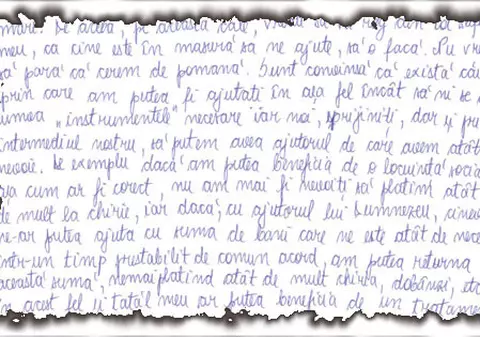 De aceea, pe această cale, vreau să vă rog din
meu, ca cine este în masură să ne ajute, să o facă. Nu vre
să pară că cerem de pomană. Sunt convinsă că există că
prin care am putea fi ajutați în așa fel încât să ni se
"instrumentele" necesare iar noi, sprijiniți, dar și
intermediul nostru, să putem avea ajutorul de care avem atât
nevoie. De exemplu dacă am putea beneficia de o locuință socia
așa cum ar fi corect, nu am mai fi nevoiți să plătim atât
de mult la chirie, iar dacă, cu ajutorul lui Dumnezeu, cinev
ne-ar putea ajuta cu suma de bani care ne este atât de nece
într-un timp prestabilit de comun acord, am putea returna
această sumă, nemaiplatind atât de mult chiria, dobânzi, etc
în acest fel și tatăl meu ar putea beneficia de un tratame